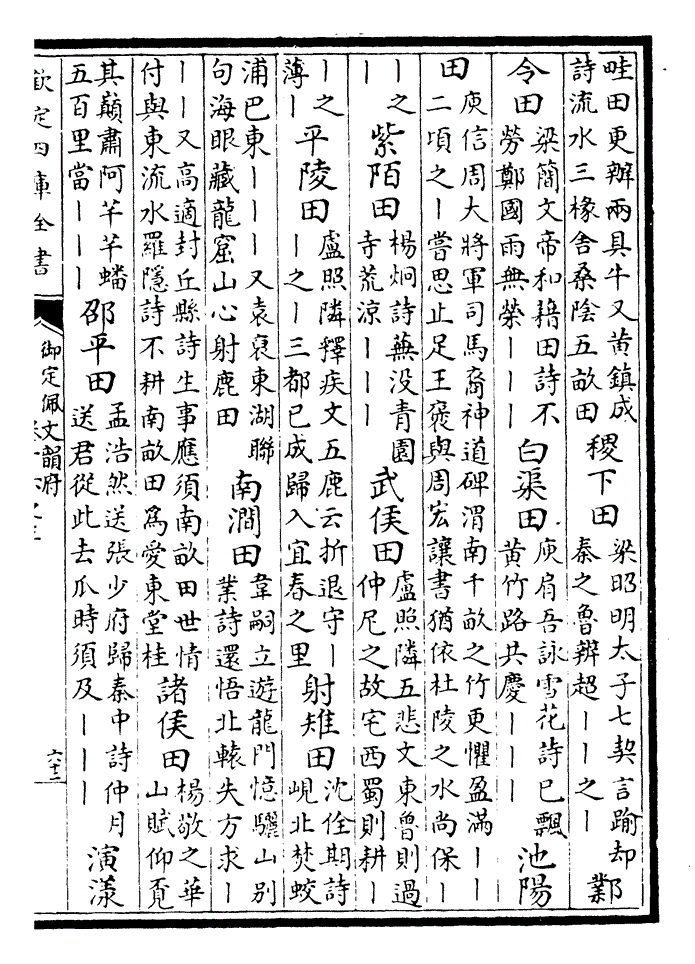 畦田更辦兩具牛又黃鎮成
詩流水三椽舍桑陰五畝田
稷下田
梁昭明太子七契言踰却
秦之魯辨超｜｜之｜
鄴
令田
梁簡文帝和籍田詩不
勞鄭國雨無榮｜｜｜
白渠田
庾肩吾詠雪花詩已飄
黃竹路共慶｜｜｜
池陽
田
庾信周大將軍司馬裔神道碑渭南千畝之竹更懼盈滿｜｜
二頃之｜嘗思止足王褒與周宏讓書猶依杜陵之水尚保｜
｜之
紫陌田
楊炯詩蕪没青園
寺荒涼｜｜｜
武侯田
盧照隣五悲文東魯則過
仲尼之故宅西蜀則耕｜
｜之
薄｜
平陵田
盧照隣釋疾文五鹿云折退守｜
｜之｜三都已成歸入宜春之里
射雉田
沈佺期詩
峴北焚蛟
浦巴東｜｜｜又袁裒東湖聯
句海眼藏龍窟山心射鹿田
南澗田
韋嗣立遊龍門憶驪山別
業詩還悟北轅失方求｜
｜｜又高適封丘縣詩生事應須南畝田世情
付與東流水羅隱詩不耕南畝田為愛東堂桂
諸侯田
楊敬之華
山賦仰覔
其巔肅阿芊芊蟠
五百里當｜｜｜
邵平田
孟浩然送張少府歸秦中詩仲月
送君從此去瓜時須及｜｜｜
演漾
欽定四庫全書
御定佩文韻府
六十三